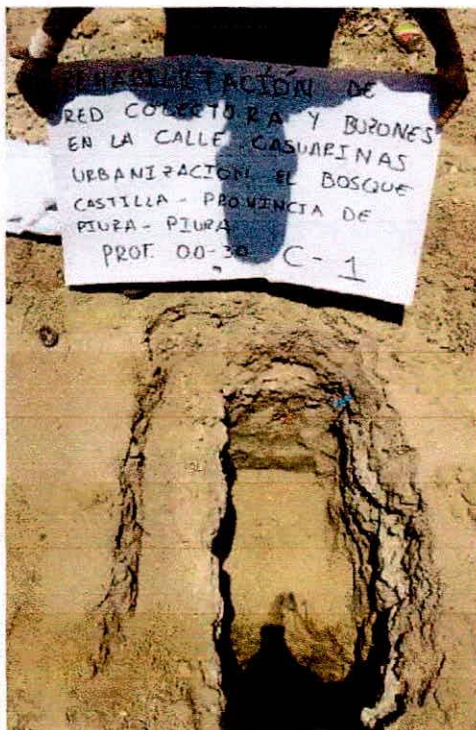 REHABILITACIÓN DE
RED COLECTORA Y BUZONES
EN LA CALLE CASUARINAS
URBANIZACIÓN EL BOSQUE
CASTILLA - PROVINCIA DE
PIURA - PIURA
PROF. 0.0-30
C-1